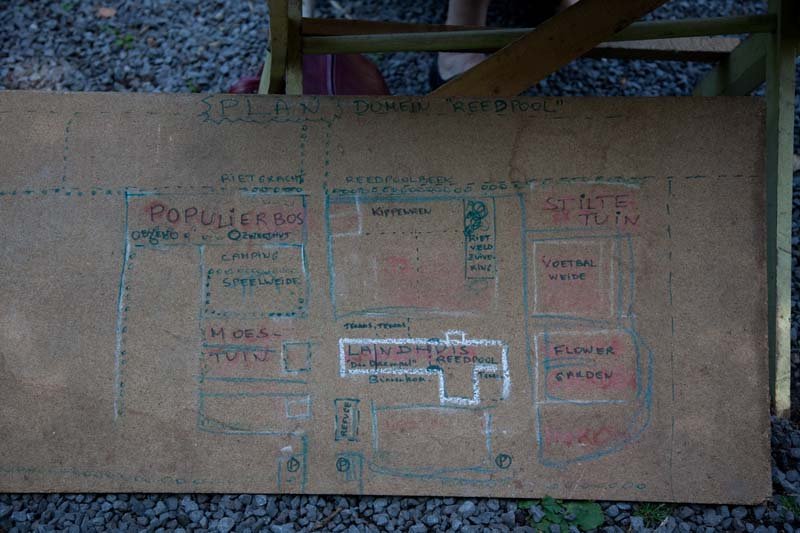 PLAN DOMEIN "REEDPOOL"
RIETGRACHT
REEDPOOLBEEK
POPULIERBOS
KIPPENREN
STILTE
TUIN
RIET
VELD
ZUIVE-
RING
CAMPING
SPEELWEIDE
VOETBAL
WEIDE
MOES-
TUIN
TERRAS, TERRAS
LANDHUIS
REEDPOOL
FLOWER
GARDEN
REFUGE
P
P
P